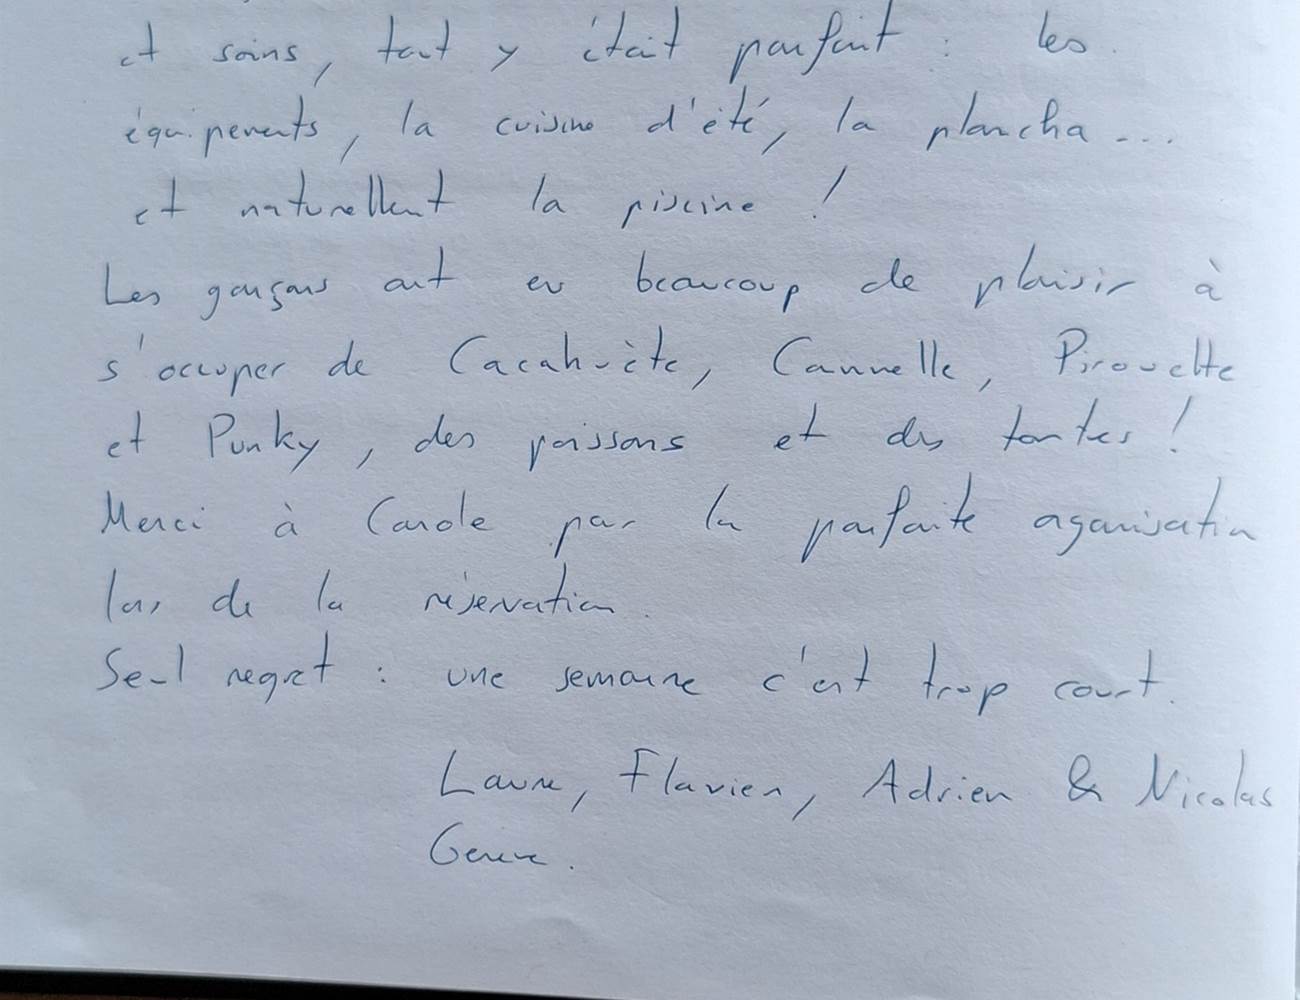 et soins, tout y était parfait : les
équipements, la cuisine d'été, la plancha...
et naturellent la piscine !
Les garçons ont eu beaucoup de plaisir à
s'occuper de Cacahuète, Cannelle, Pirouette
et Punky, des poissons et des tortues !
Merci à Carole pour la parfaite organisation
lors de la réservation.
Seul regret : une semaine c'est trop court.
Laure, Flavien, Adrien & Nicolas
Genève.